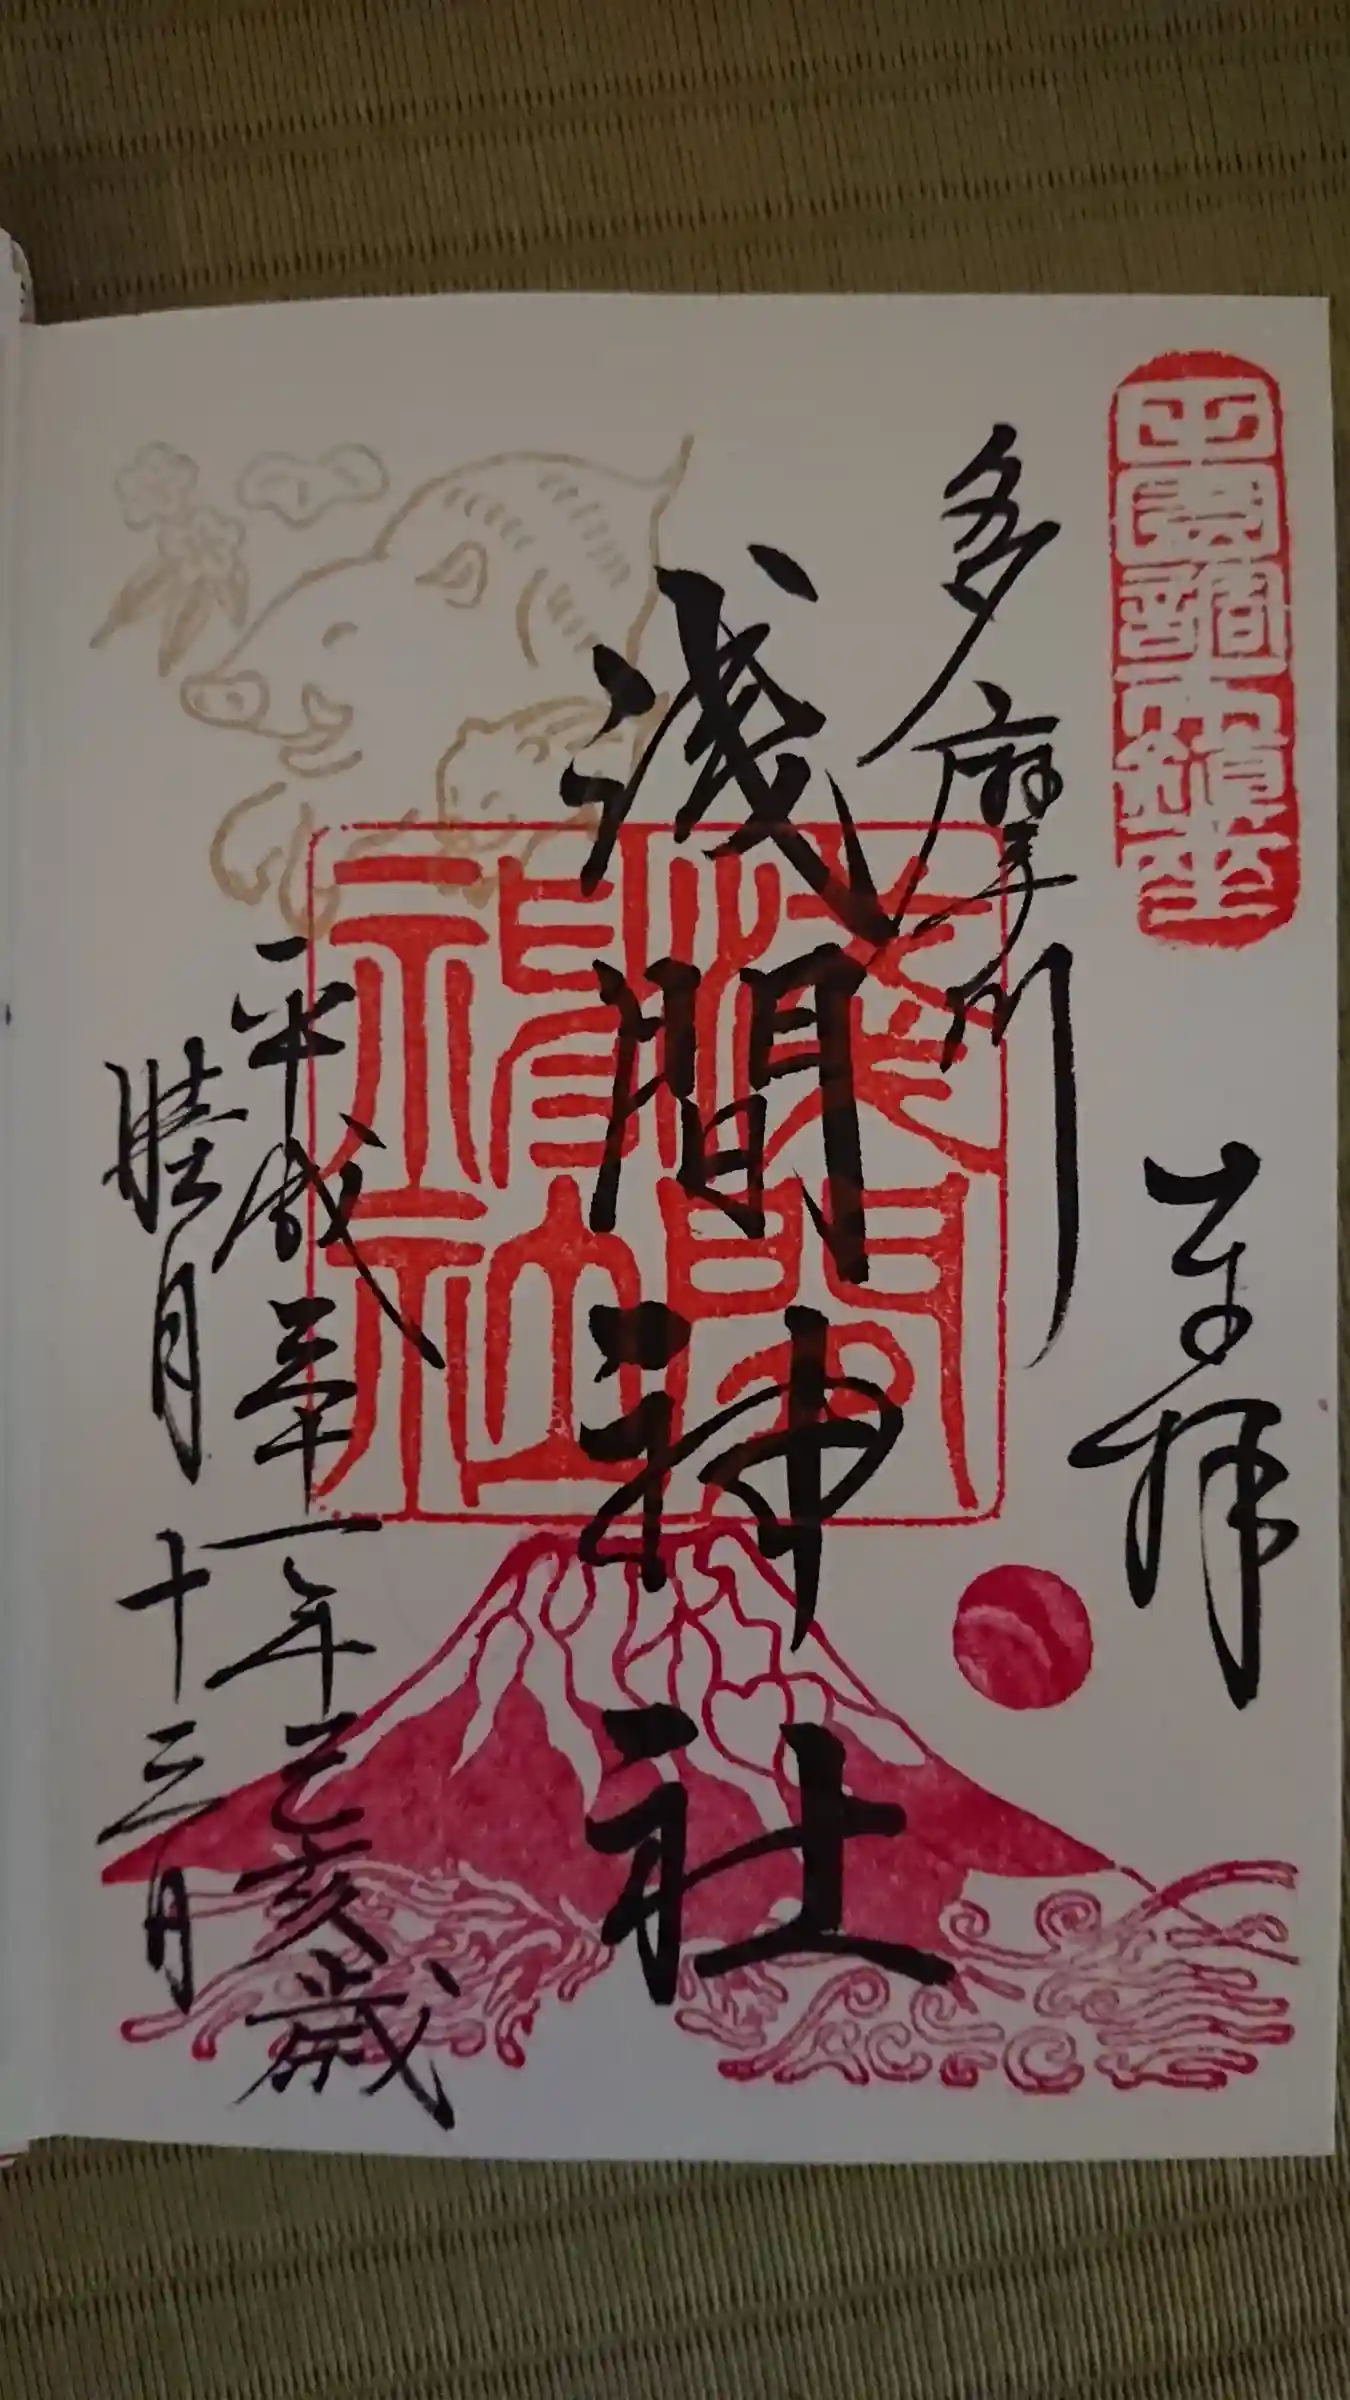 奉拝
多摩川
浅間神社
平成三十一年己亥歳
睦月十三日
浅間神社